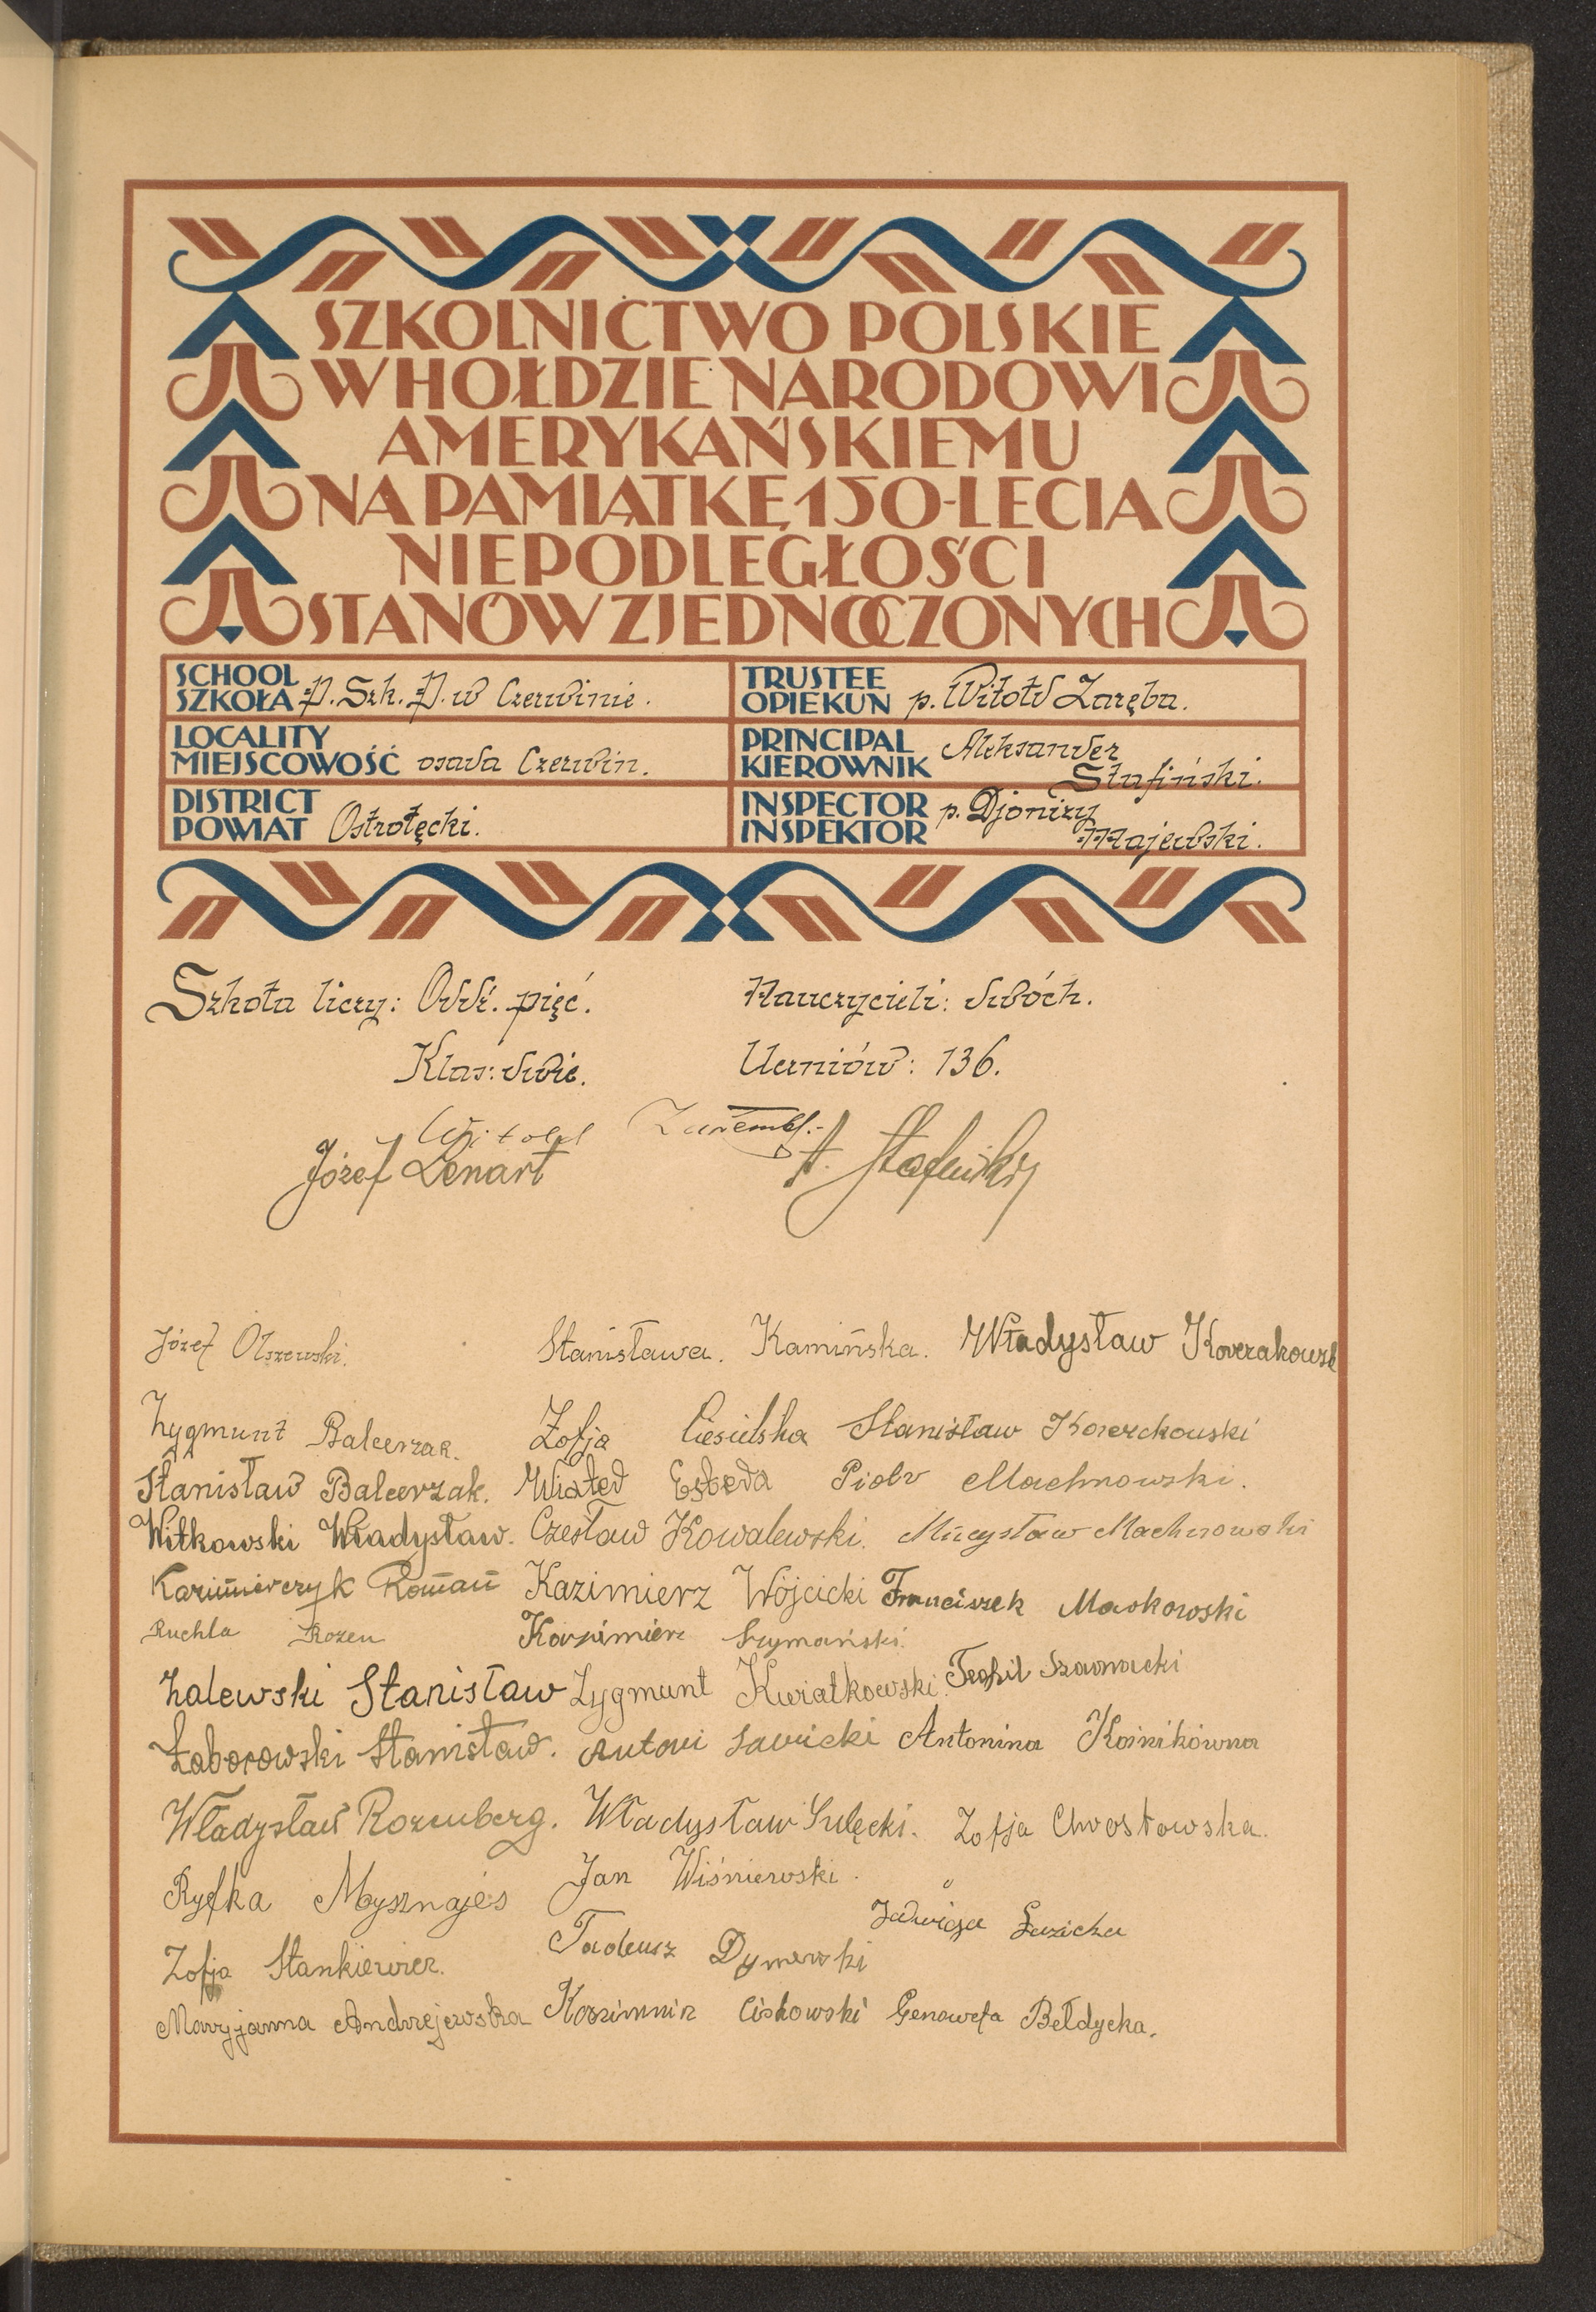 SZKOLNICTWO POLSKIE
W HOŁDZIE NARODOWI
AMERYKAŃSKIEMU
NA PAMIĄTKĘ 150-LECIA
NIEPODLEGŁOŚCI
STANÓW ZJEDNOCZONYCH
SCHOOL
SZKOŁA P. Szk. P. w Czerwinie.
TRUSTEE
OPIEKUN p. Witołd Zaręba.
LOCALITY
MIEJSCOWOŚĆ osada Czerwin.
PRINCIPAL
KIEROWNIK Aleksander
Stafiński.
DISTRICT
POWIAT Ostrołęcki.
INSPECTOR
INSPEKTOR p. Djonizy
Majewski.
Szkoła liczy: Oddź. pięć. Nauczycieli: dwóch.
Klas: dwie. Uczniów: 136.
Witold
Józef Lenart A. Stafiński
Józef Olszewski. Stanisława. Kamińska. Władysław
Zygmunt Balcerzak. Zofja Ciesielska Stanisław
Stanisław Balcerzak. Piotr Machnowski.
Witkowski Władysław. Czesław Kowalewski. Mieczysław Machnowski
Kazimierczyk Roman Kazimierz Wójcicki Franciszek Maokowski
Ruchla Rozen Kazimierz Szymański.
Zalewski Stanisław Zygmunt Kwiatkowski. Teofil
Zaborowski Stanisław. Antoni Sawicki Antonina Kośnikówna
Władysław Rozenberg. Władysław Sulęcki. Zofja Chrostowska.
Ryfka Mysznajes Jan Wiśniewski.
Jadwiga
Zofja Stankiewicz. Tadeusz Dymerski
Maryjanna Andrzejewska Kazimierz Ciskowski Genowefa Bełdycka.